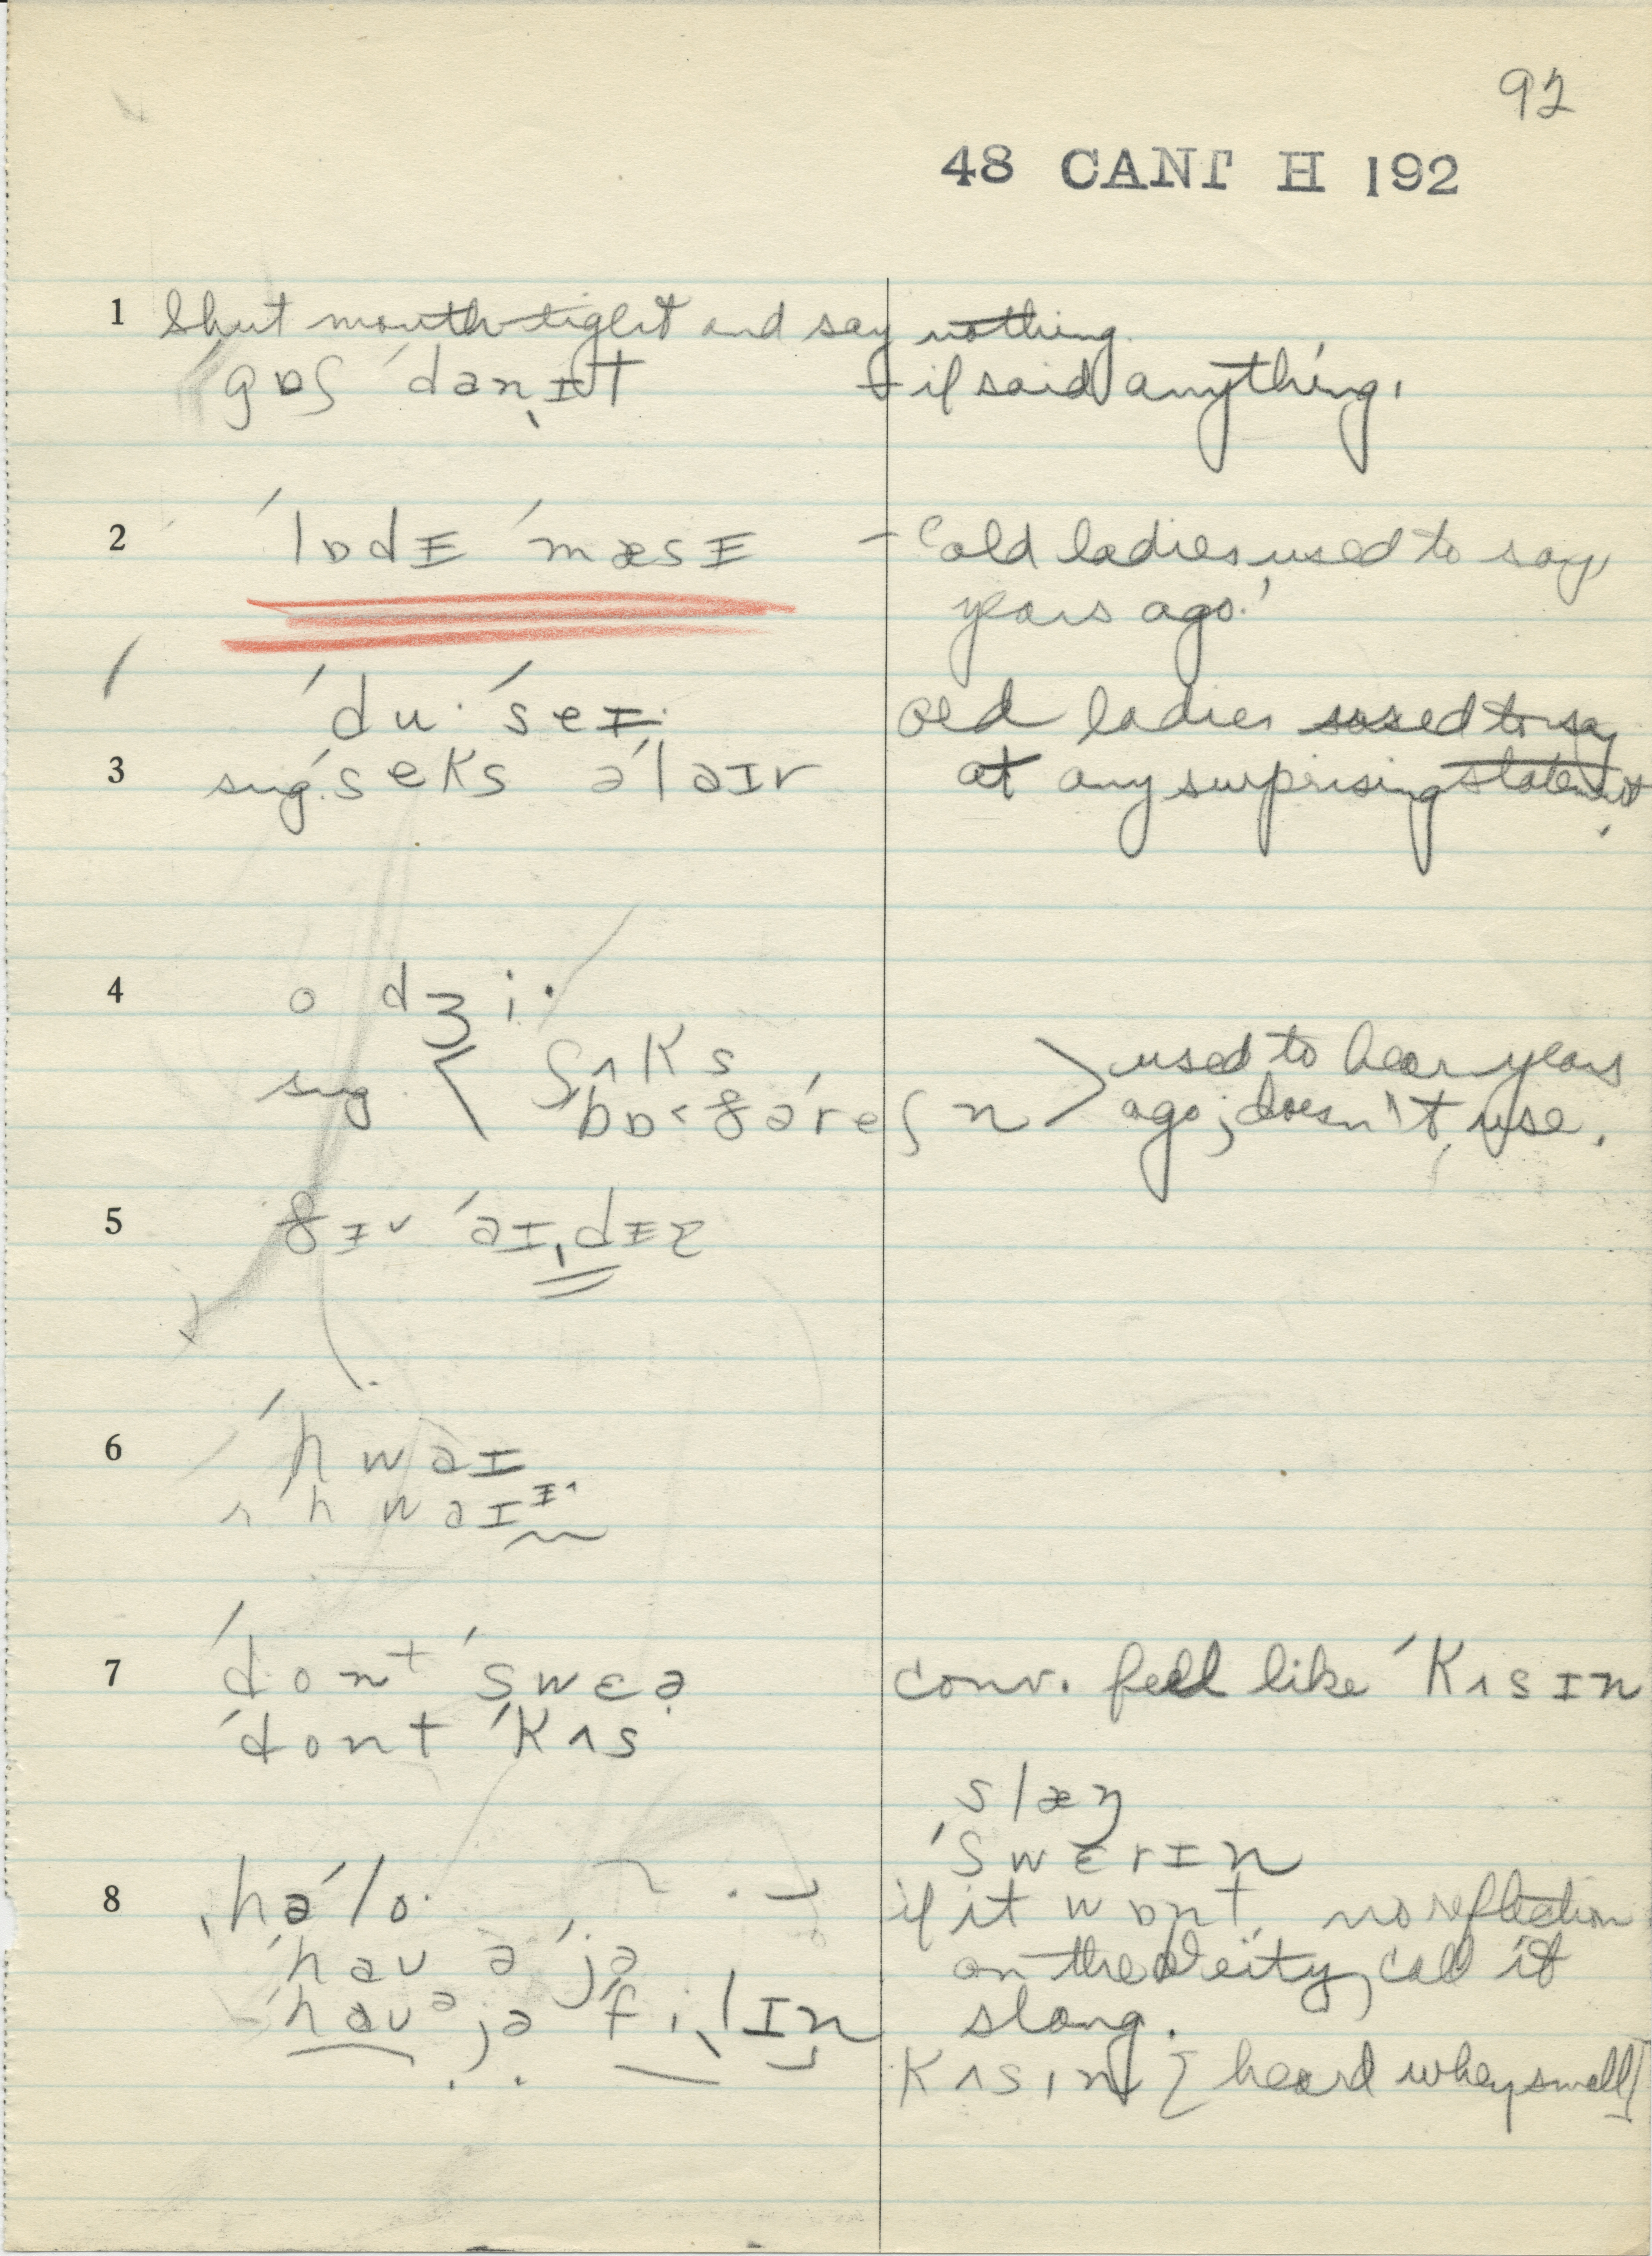 92
48 CANT H 192
1 Shut mouth tight and say nothing.
ˈgɒʃ ˈdanˌɪt – if said anything.
2 ˈlɒdɪ ˈmæsɪ – 'old ladies used to say,
years ago.'
ˈdu· ˈseɪ· old ladies used to say
3 sug. ˈseks əˈlaɪv at any surprising statement.
4 o dʒi·
sug. ʃʌks used to hear years
bɒ·ʒəˈreʃn ago; doesn't use.
5 ˈaɪˌdɪə
6 ˈhwaɪ
r ˈhwaɪɪ·
7 ˈdont ˈswɛə conv. feel like ˈkʌsɪn
ˈdont ˈkʌs
slæŋ
ˈswɛrɪn
8 ˌhəˈlo· if it wɒnt no reflection
ˈhau əˈjə on the Deity, call it
ˈhauə jə ˈfiˌlɪn slang.
kʌsɪn [heard when small]